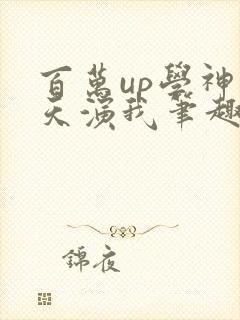 百萬up學神
天演我筆趣
錦夜